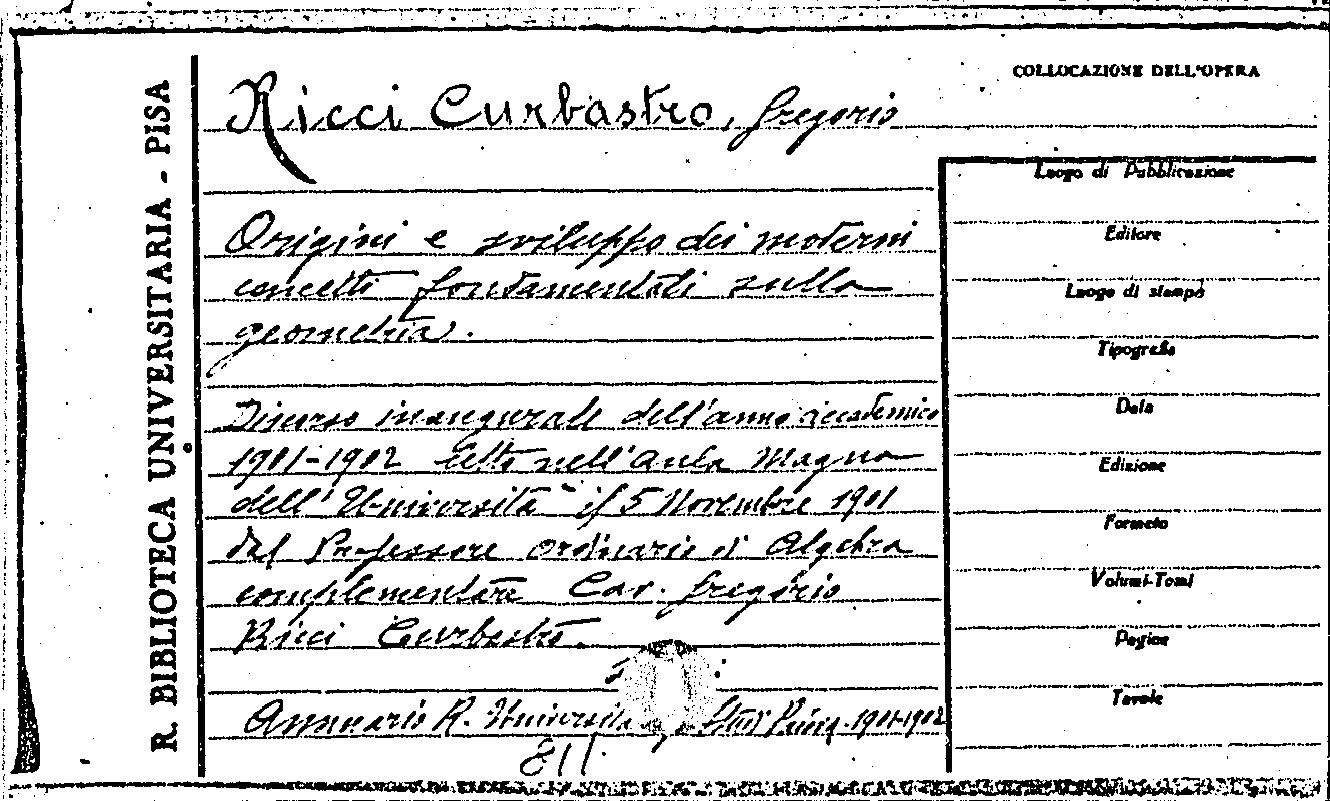 R. BIBLIOTECA UNIVERSITARIA - PISA
Ricci Curbastro, Gregorio
Origini e sviluppo dei moderni
concetti fondamentali sulla
geometria.
Discorso inaugurale dell'anno accademico
1901-1902 letto nell'Aula Magna
dell'Università il 5 Novembre 1901
dal Professore ordinario di Algebra
complementare Cav. Gregorio
Ricci Curbastro.
Annuario R. Università 1901-1902
811
COLLOCAZIONE DELL'OPERA
Luogo di Pubblicazione
Editore
Luogo di stampa
Tipografia
Data
Edizione
Formato
Volumi-Tomi
Pagine
Tavole